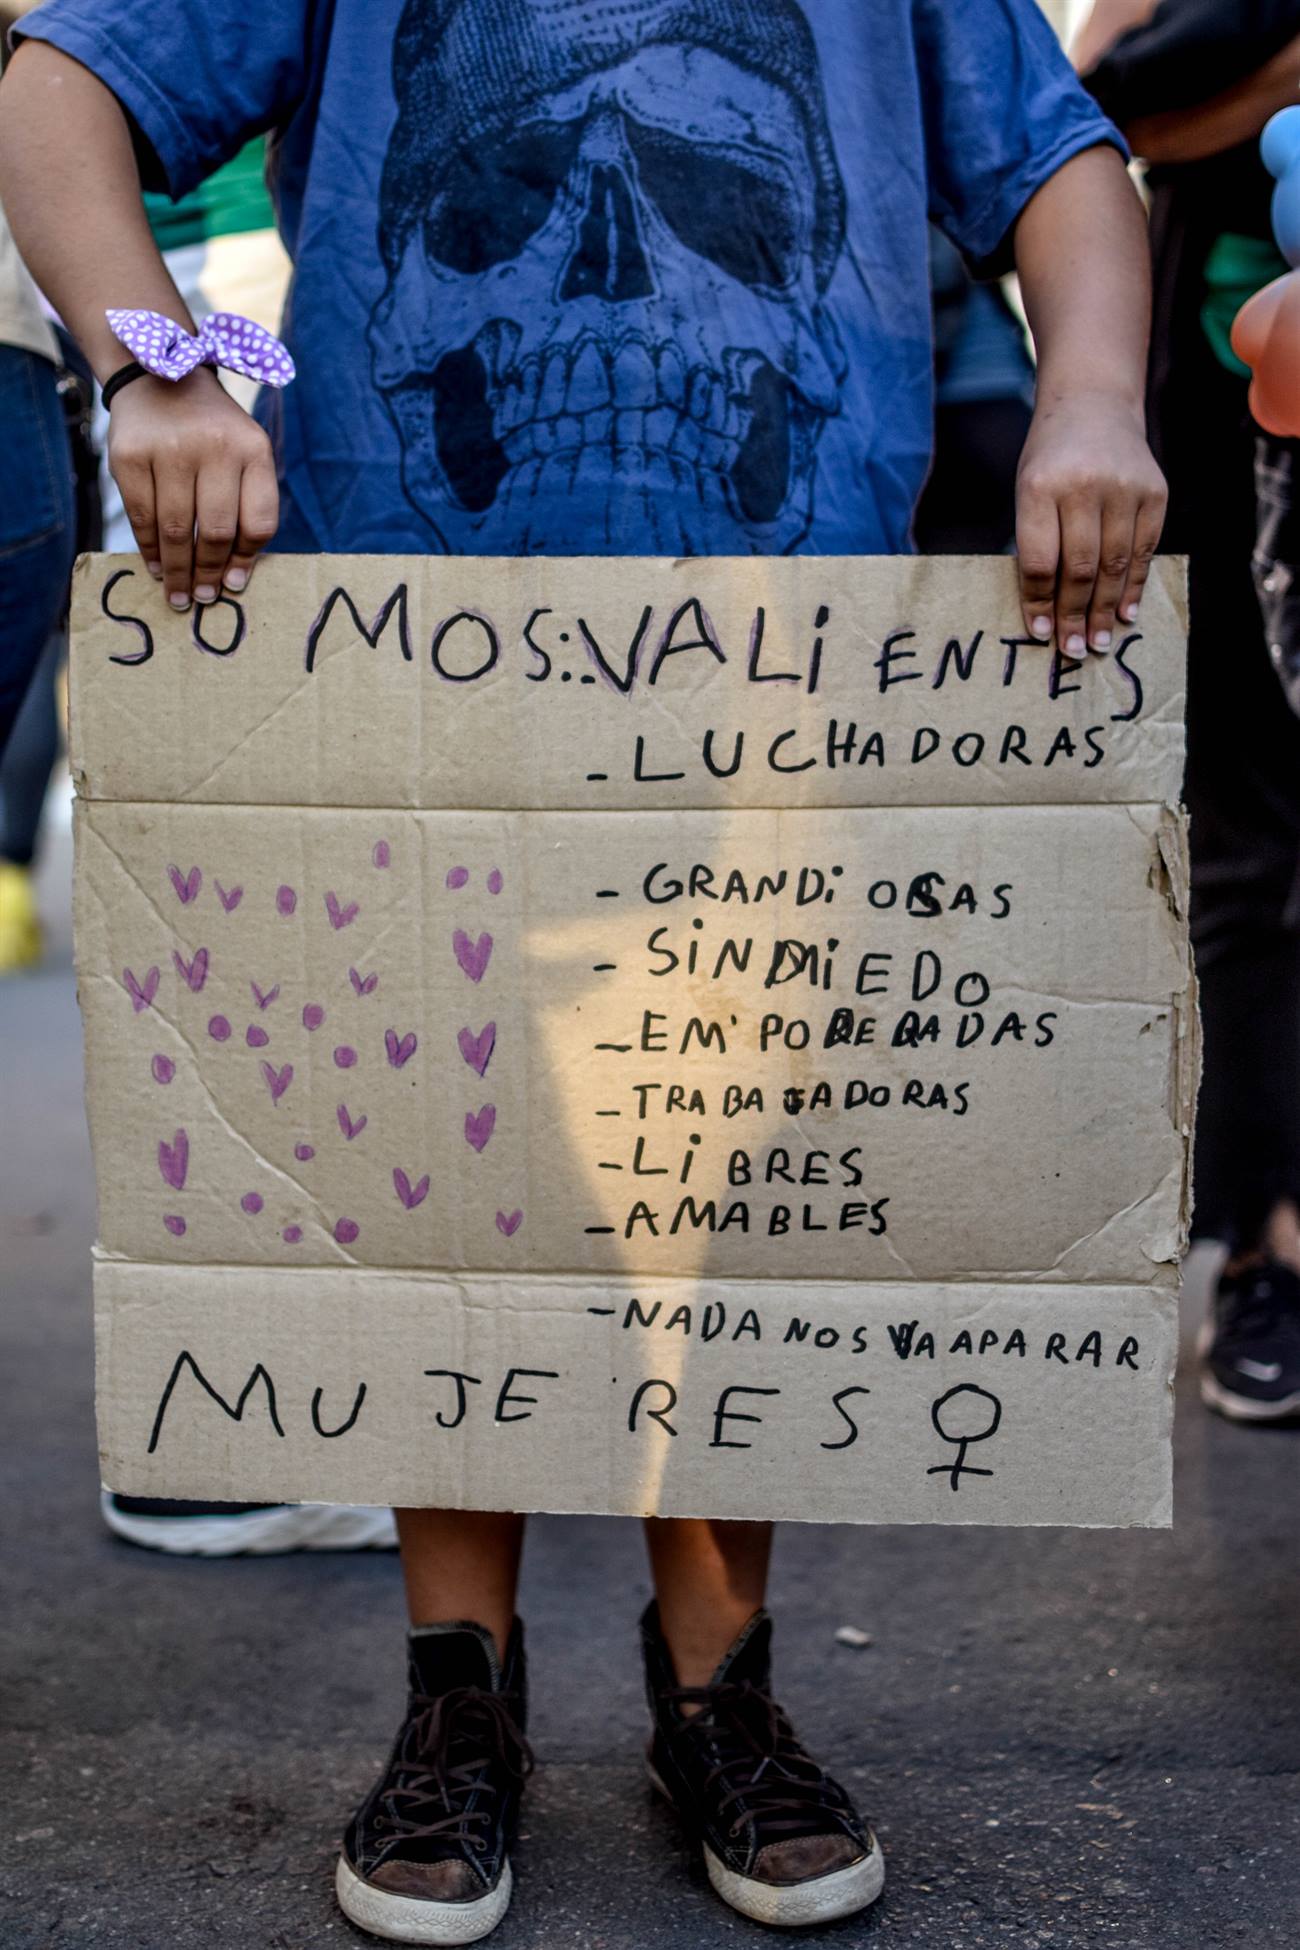 SOMOS:.VALIENTES
-LUCHADORAS
-GRANDiOSAS
-SiNMiEDO
-EM'PODERADAS
-TRABAJADORAS
-LiBRES
-AMABLES
-NADA NOS VA APARAR
MUJERES ♀